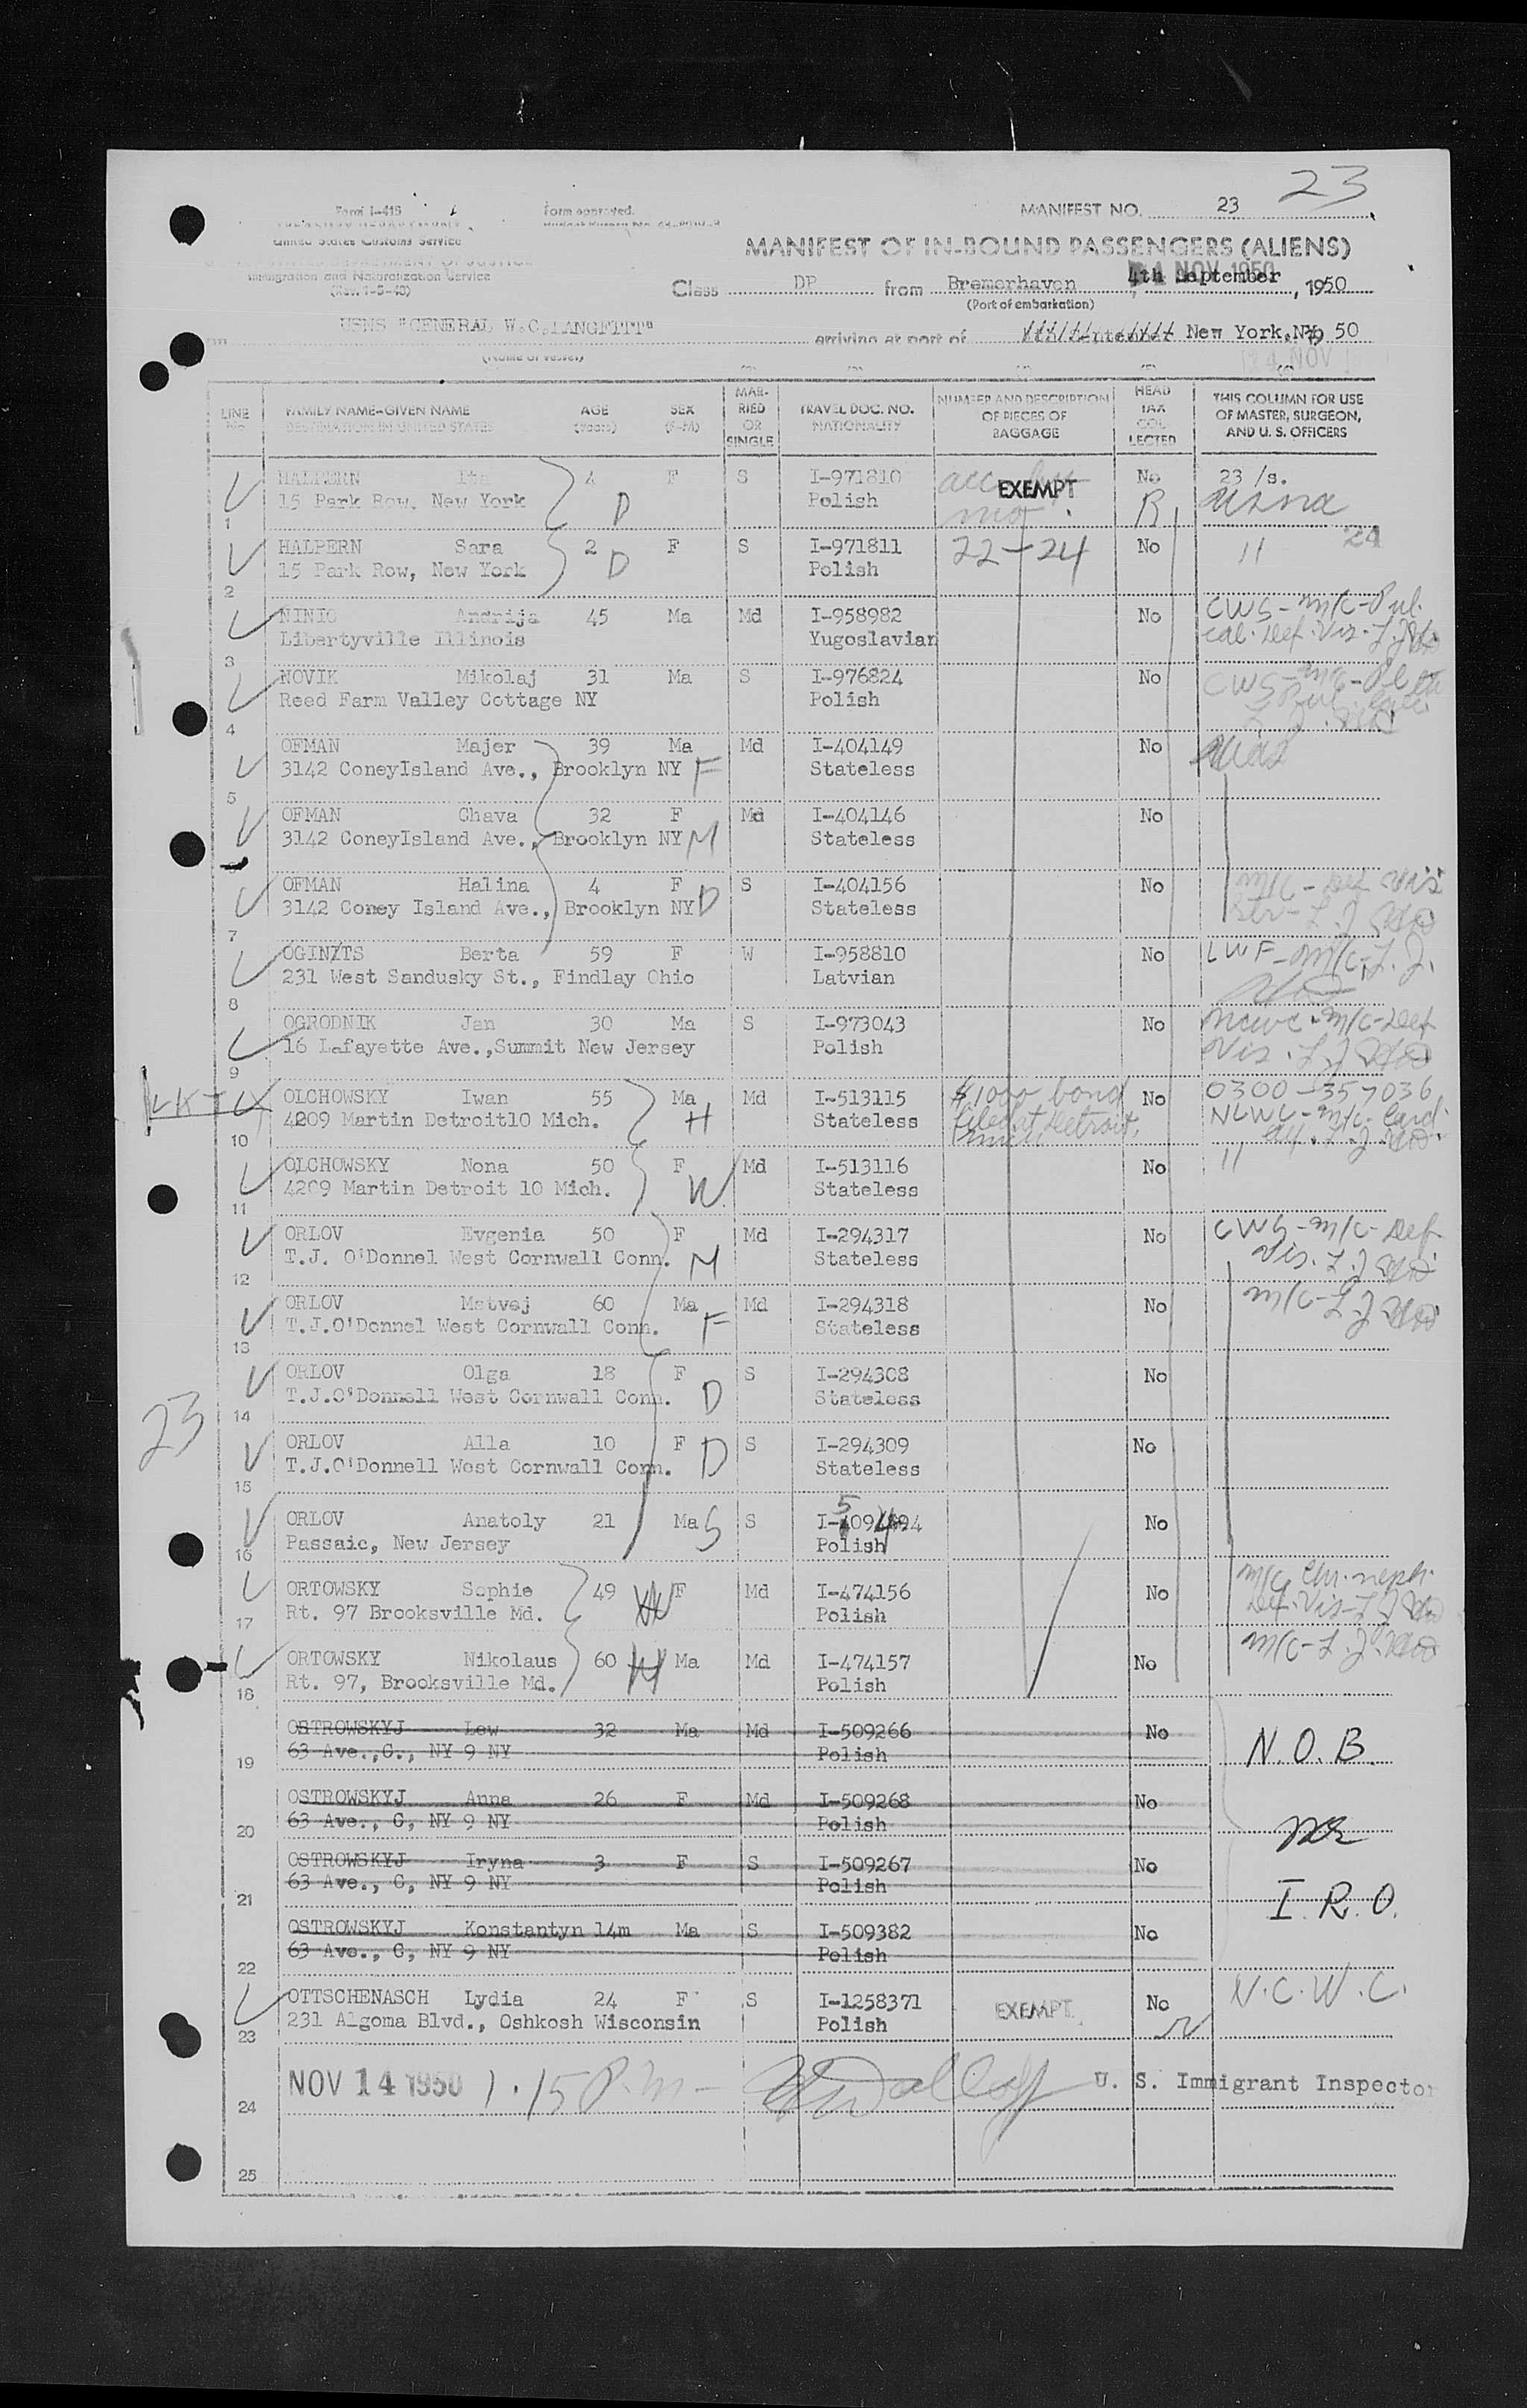 23
Form I-415
Form approved.
MANIFEST NO. 23
United States Customs Service
MANIFEST OF IN-BOUND PASSENGERS (ALIENS)
Immigration and Naturalization Service
Class DP from Bremerhaven 4th September, 1950
(Port of embarkation)
USNS "GENERAL W.C.LANGFITT"
arriving at port of New York,NY 50
(Name of vessel)
LINE No. FAMILY NAME-GIVEN NAME DESTINATION IN UNITED STATES AGE (Years) SEX (F-M) MARRIED OR SINGLE TRAVEL DOC. NO. NATIONALITY NUMBER AND DESCRIPTION OF PIECES OF BAGGAGE HEAD TAX COLLECTED THIS COLUMN FOR USE OF MASTER, SURGEON, AND U. S. OFFICERS
HALPERN Ita 4 F S I-971810 EXEMPT No 23 /s.
15 Park Row, New York D Polish R usna
1
HALPERN Sara 2 F S I-971811 22-24 No 11 24
15 Park Row, New York D Polish
2
NINIC Andrija 45 Ma Md I-958982 No CWS-m/c-Pul.
Libertyville Illinois Yugoslavian
3
NOVIK Mikolaj 31 Ma S I-976824 No CWS-m/c
Reed Farm Valley Cottage NY Polish
4
OFMAN Majer 39 Ma Md I-404149 No
3142 ConeyIsland Ave., Brooklyn NY F Stateless
5
OFMAN Chava 32 F Md I-404146 No
3142 ConeyIsland Ave., Brooklyn NY M Stateless
OFMAN Halina 4 F S I-404156 No m/c-Def vis
3142 Coney Island Ave., Brooklyn NY D Stateless
7
OGINTS Berta 59 F W I-958810 No LWF-m/c-L.J.
231 West Sandusky St., Findlay Ohio Latvian
8
OGRODNIK Jan 30 Ma S I-973043 No NCWC-m/c-Def
16 Lafayette Ave.,Summit New Jersey Polish Vis.
9
OLCHOWSKY Iwan 55 Ma Md I-513115 $1000 bond No 0300-357036
4209 Martin Detroit10 Mich. H Stateless filed at Detroit, NCWC-m/c-Card.
10
OLCHOWSKY Nona 50 F Md I-513116 No 11
4209 Martin Detroit 10 Mich. W Stateless
11
ORLOV Evgenia 50 F Md I-294317 No CWS-m/c-Def
T.J. O'Donnel West Cornwall Conn. M Stateless Vis. L.J.
12
ORLOV Matvej 60 Ma Md I-294318 No m/c-L.J.
T.J.O'Donnel West Cornwall Conn. F Stateless
13
ORLOV Olga 18 F S I-294308 No
T.J.O'Donnell West Cornwall Conn. D Stateless
14
23
ORLOV Alla 10 F S I-294309 No
T.J.O'Donnell West Cornwall Conn. D Stateless
15
ORLOV Anatoly 21 Ma S S No
Passaic, New Jersey Polish
16
ORTOWSKY Sophie 49 W F Md I-474156 No m/c Chr. neph.
Rt. 97 Brooksville Md. Polish Def. Vis-L.J.
17
ORTOWSKY Nikolaus 60 H Ma Md I-474157 No m/c-L.J.
Rt. 97, Brooksville Md. Polish
18
OSTROWSKYJ Lew 32 Ma Md I-509266 No
63 Ave.,C., NY 9 NY Polish N.O.B.
19
OSTROWSKYJ Anna 26 F Md I-509268 No
63 Ave., C, NY 9 NY Polish
20
OSTROWSKYJ Iryna 3 F S I-509267 No
63 Ave., C, NY 9 NY Polish
21 I.R.O.
OSTROWSKYJ Konstantyn 14m Ma S I-509382 No
63 Ave., C, NY 9 NY Polish
22
OTTSCHENASCH Lydia 24 F S I-1258371 EXEMPT No N.C.W.C.
231 Algoma Blvd., Oshkosh Wisconsin Polish
23
NOV 14 1950 1.15 P.m- U. S. Immigrant Inspector
24
25